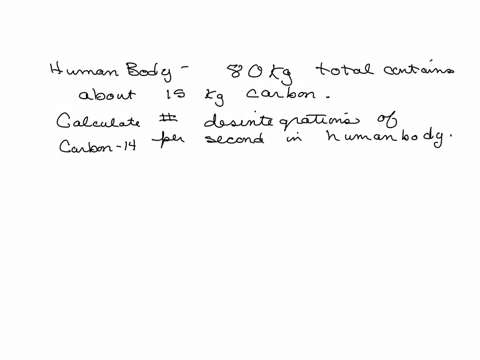 Human Body - 80 kg total contains
about 15 kg carbon.
Calculate # desintegrations of
Carbon-14 per second in human body.